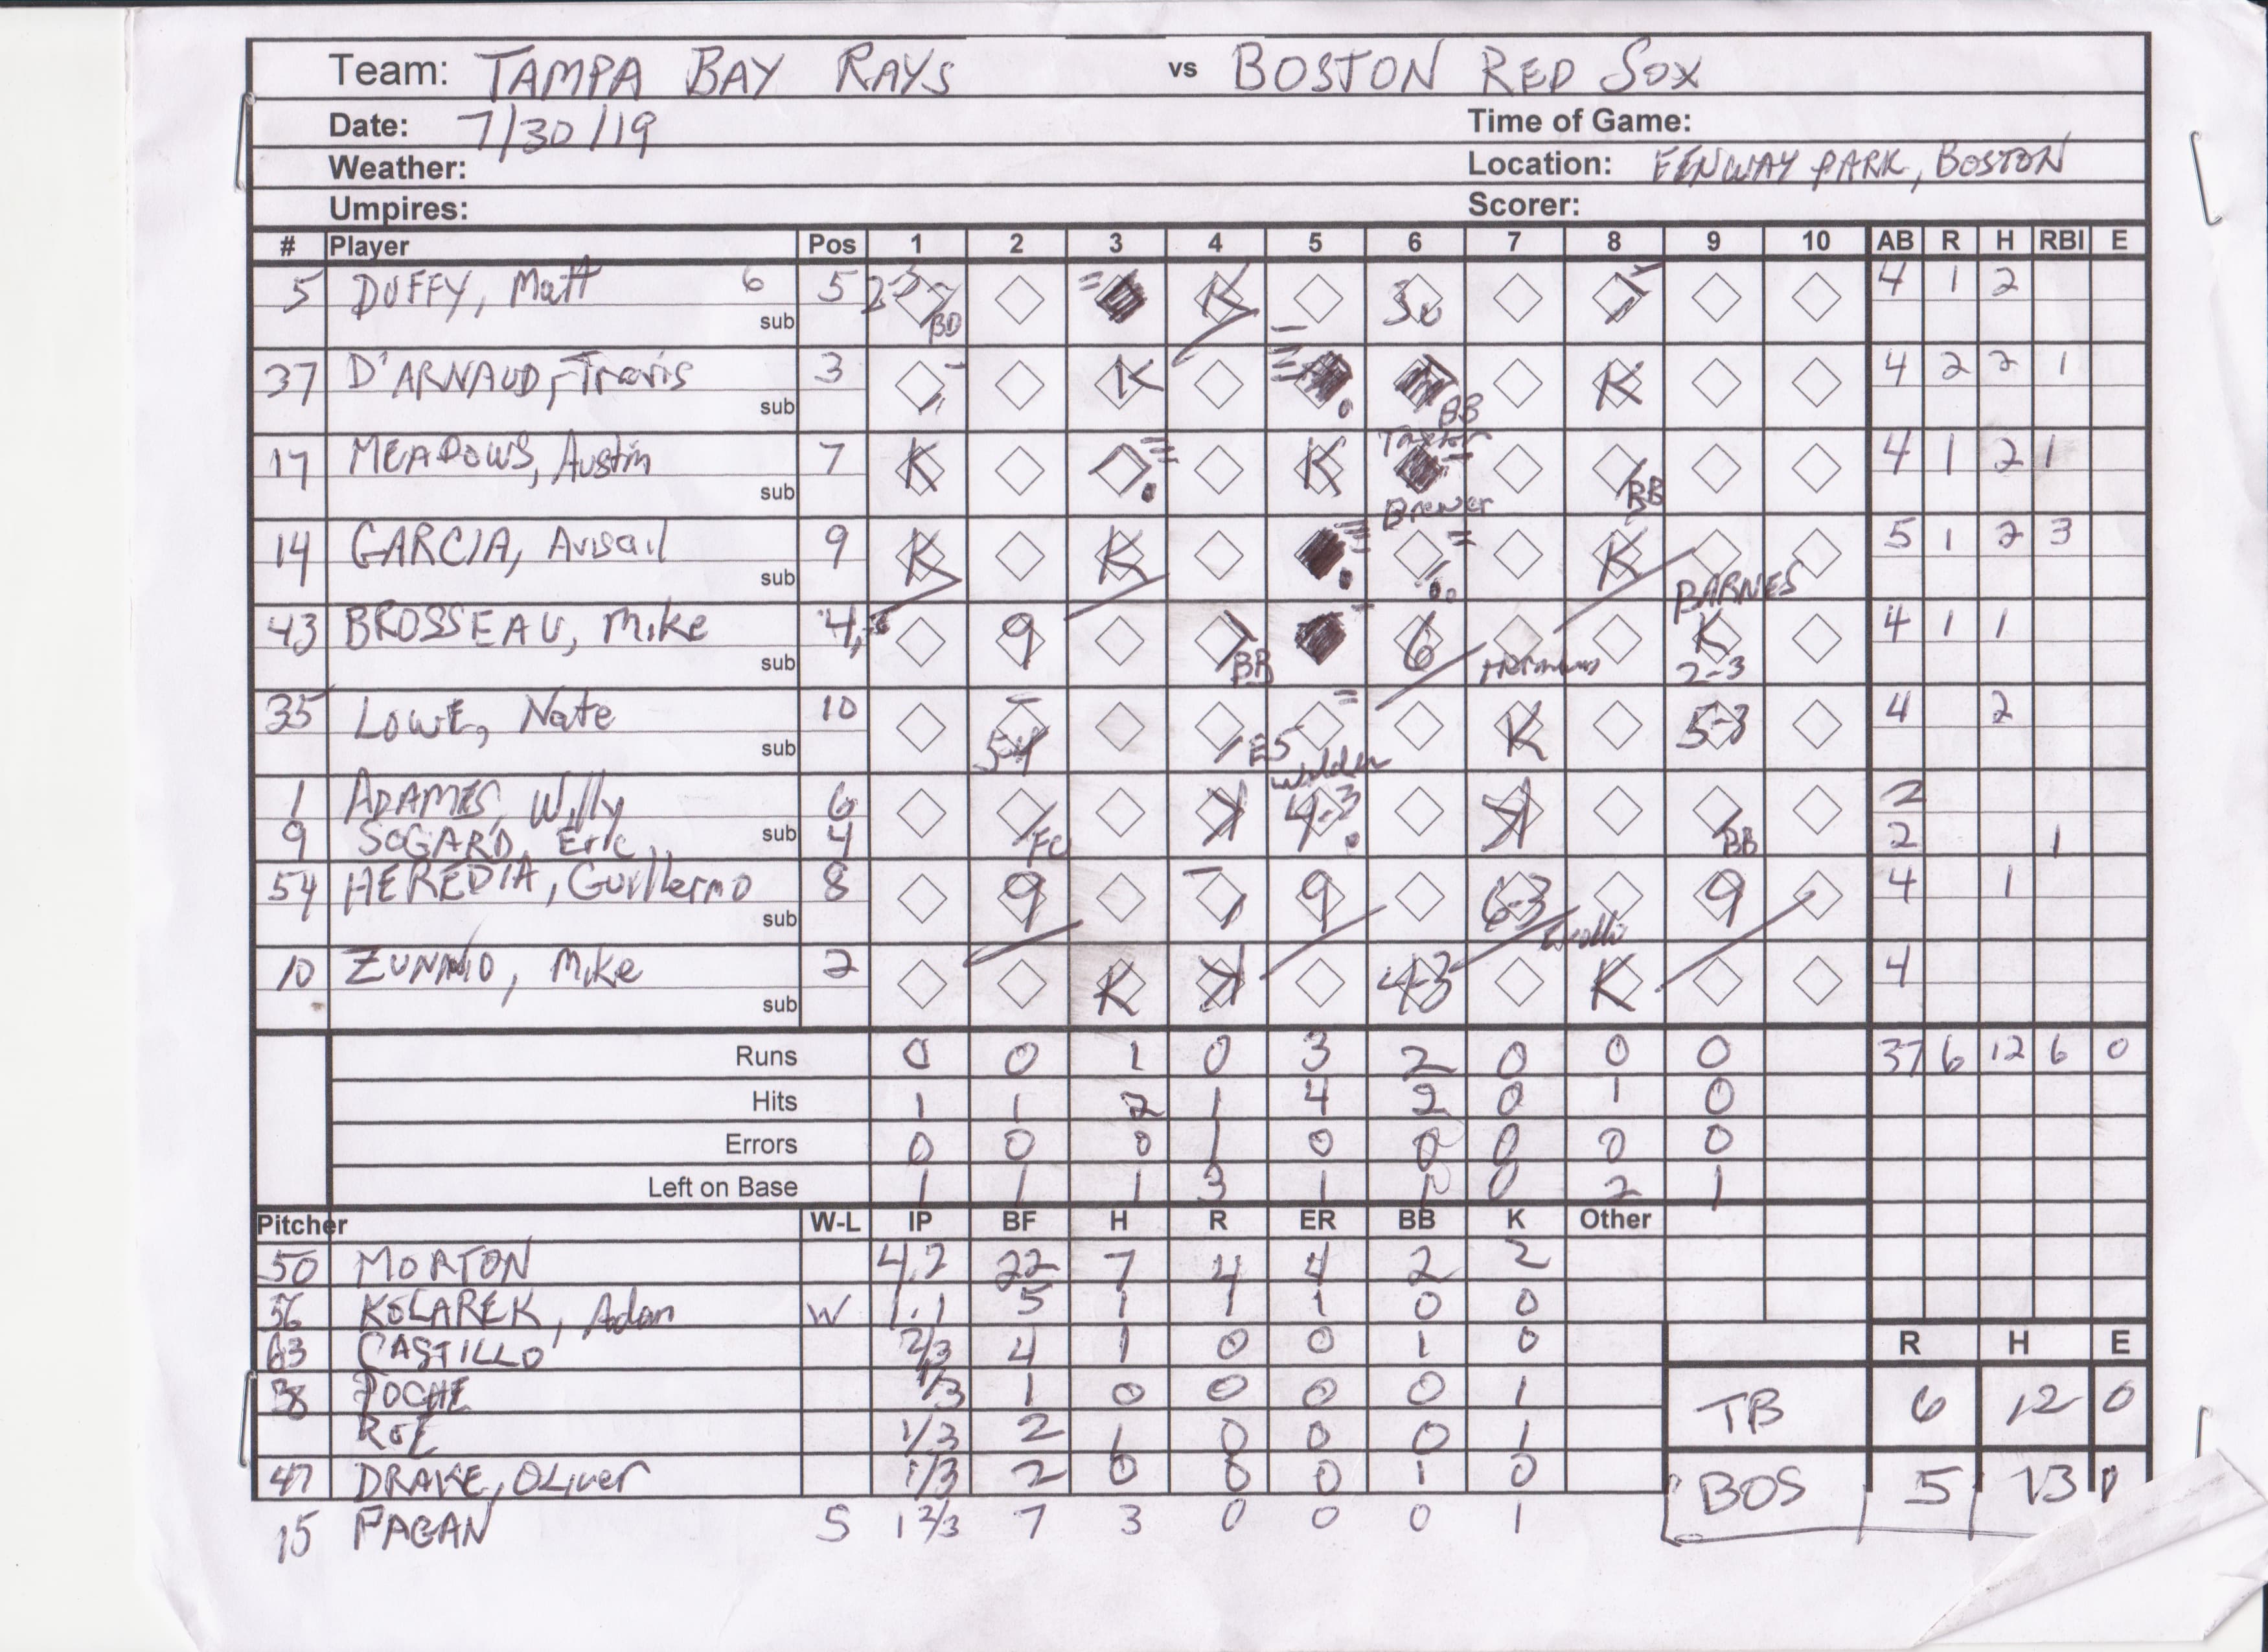 Team: TAMPA BAY RAYS vs BOSTON RED SOX
Date: 7/30/19 Time of Game:
Weather: Location: FENWAY PARK, BOSTON
Umpires: Scorer:
# Player Pos 1 2 3 4 5 6 7 8 9 10 AB R H RBI E
5 DUFFY, Matt 6 5 K 4 1 2
sub BB
37 D'ARNAUD, Travis 3 K K 4 2 2 1
sub BB
17 MEADOWS, Austin 7 K K 4 1 2 1
sub Brewer BB
14 GARCIA, Avisail 9 K K K 5 1 2 3
sub BARNES
43 BROSSEAU, Mike 4, 9 6 K 4 1 1
sub BB 2-3
35 LOWE, Nate 10 K 5-3 4 2
sub 5-4 E5 Walden
1 ADAMES, Willy 6 K 4-3 K 2
9 SOGARD, Eric sub 4 FC BB 2 1
54 HEREDIA, Guillermo 8 9 9 6-3 9 4 1
sub
10 ZUNINO, Mike 2 K K 4-3 K 4
sub
Runs 0 0 1 0 3 2 0 0 0 37 6 12 6 0
Hits 1 1 2 1 4 2 0 1 0
Errors 0 0 0 1 0 0 0 0 0
Left on Base 1 1 1 3 1 1 0 2 1
Pitcher W-L IP BF H R ER BB K Other
50 MORTON 4.2 22 7 4 4 2 2
56 KOLAREK, Adam W 1.1 5 1 1 1 0 0
63 CASTILLO 2/3 4 1 0 0 1 0
R H E
38 POCHE 1/3 1 0 0 0 0 1
TB 6 12 0
ROE 1/3 2 1 0 0 0 1
47 DRAKE, Oliver 1/3 2 0 0 0 1 0
BOS 5 13 1
15 PAGAN S 1 2/3 7 3 0 0 0 1